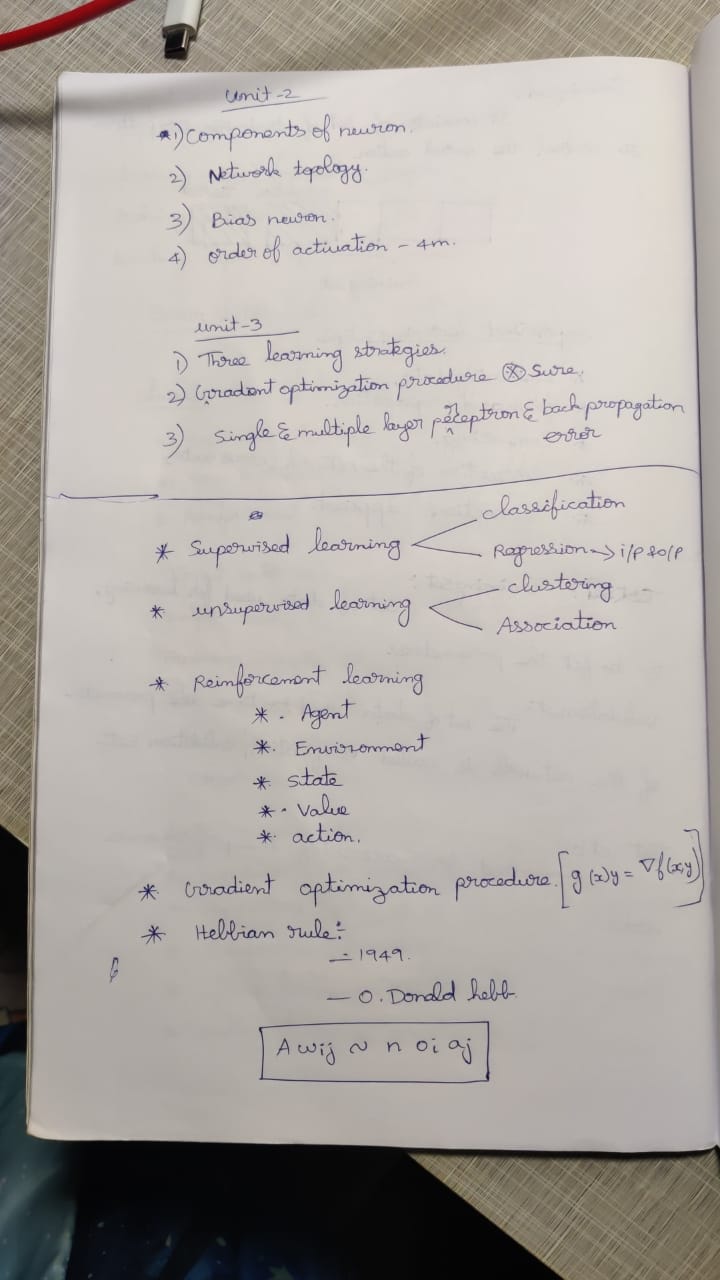 Unit-2
*1) Components of neuron.
2) Network topology.
3) Bias neuron.
4) order of activation - 4m.
unit-3
1) Three learning strategies.
2) Gradient optimization procedure ⊗ Sure.
3) Single & multiple layer perceptron & back propagation
error
* Supervised learning
classification
Regression → i/p & o/p
* unsupervised learning
clustering
Association
* Reinforcement learning
* . Agent
* . Environment
* state
* . Value
* . action.
* Gradient optimization procedure. [g(x)y = ∇f(x,y)]
* Hebbian rule:-
- 1949.
- O. Donald hebb.
A wij ~ n oi aj